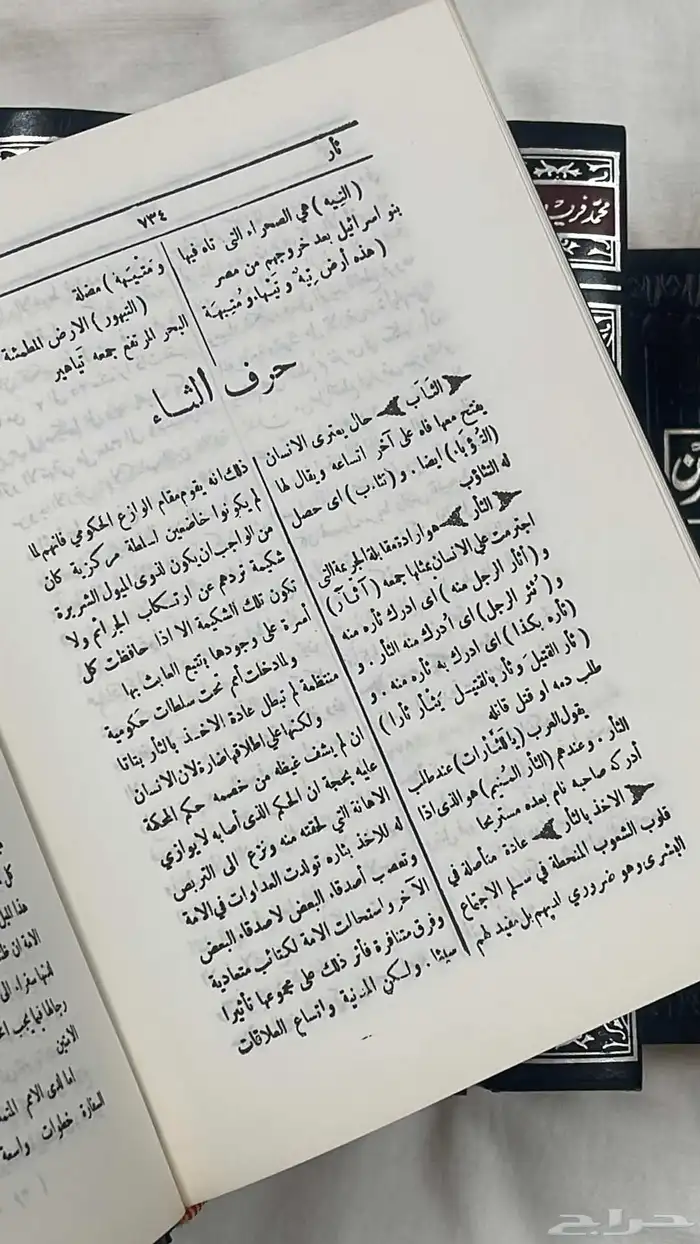 ثأر
٧٣٤
( التيه ) هي الصحراء التي تاه فيها
بنو اسرائيل بعد خروجهم من مصر
( هذه أرض تِيهٌ و تَيْهاء و مُتيهة
و مَتْيَهة ) مضلة
( التيهور ) الارض المطمئنة
البحر المرتفع جمعه تَياهير
حرف الثاء
الثَأَب حال يعترى الانسان
يفتح معها فاه على آخر اتساعه ويقال لها
(الثُؤَباء) ايضا . و ( تثاءب ) اى حصل
له التثاؤب
الثأر هو ارادة مقابلة الجريمة التى
اجترمت على الانسان بمثلها جمعه ( أثآر )
و ( أثأر الرجل منه ) اى ادرك ثأره منه
و ( ثئر الرجل ) اى أدرك منه الثأر . و
( ثأره بكذا ) اى ادرك به ثأره منه . و
( ثأر القتيلَ و ثأر بالقتيل يَثْأر ثأرا )
طلب دمه او قتل قاتله
يقول العرب ( يا لَثارات ) عند طلب
الثأر . وعندهم ( الثأر المُنيم ) هو الذى اذا
أدركه صاحبه نام بعده مستريحا
الاخذ بالثأر عادة متأصلة في
قلوب الشعوب المنحطة في سلم الاجتماع
البشرى وهو ضروري لديهم بل مفيد لهم
ذلك انه يقوم مقام الوازع الحكومي فانهم لما
لم يكونوا خاضعين لسلطة مركزية كان
من الواجب ان يكون لذوى الميول الشريرة
شكيمة تردهم عن ارتكاب الجرائم ولا
تكون تلك الشكيمة الا اذا حافظت كل
أسرة على وجودها بتتبع العابث بها
ولما دخلت أمم تحت سلطات حكومية
منتظمة لم تبطل عادة الاخذ بالثأر بتاتا
ولكنها على اطلاقها ضارة لان الانسان
ان لم يشف غيظه من خصمه حكم المحكمة
عليه بحجة ان الحكم الذى أصابه لا يوازي
الاهانة التي لحقته منه ونزع الى التربص
له للاخذ بثاره تولدت العداوات في الامة
وتعصب أصدقاء البعض لاصدقاء البعض
الآخر واستحالت الامة لكتائب متعادية
وفرق متنافرة فأثر ذلك على مجموعها تأثيرا
سيئا . ولكن المدنية واتساع العلاقات
كل
هذا الميل
الامة ان
رجالها فيما يجب
الاثنين
اما لدى الامم
السفارة خطوات واسعة
محمد فريد
حراج